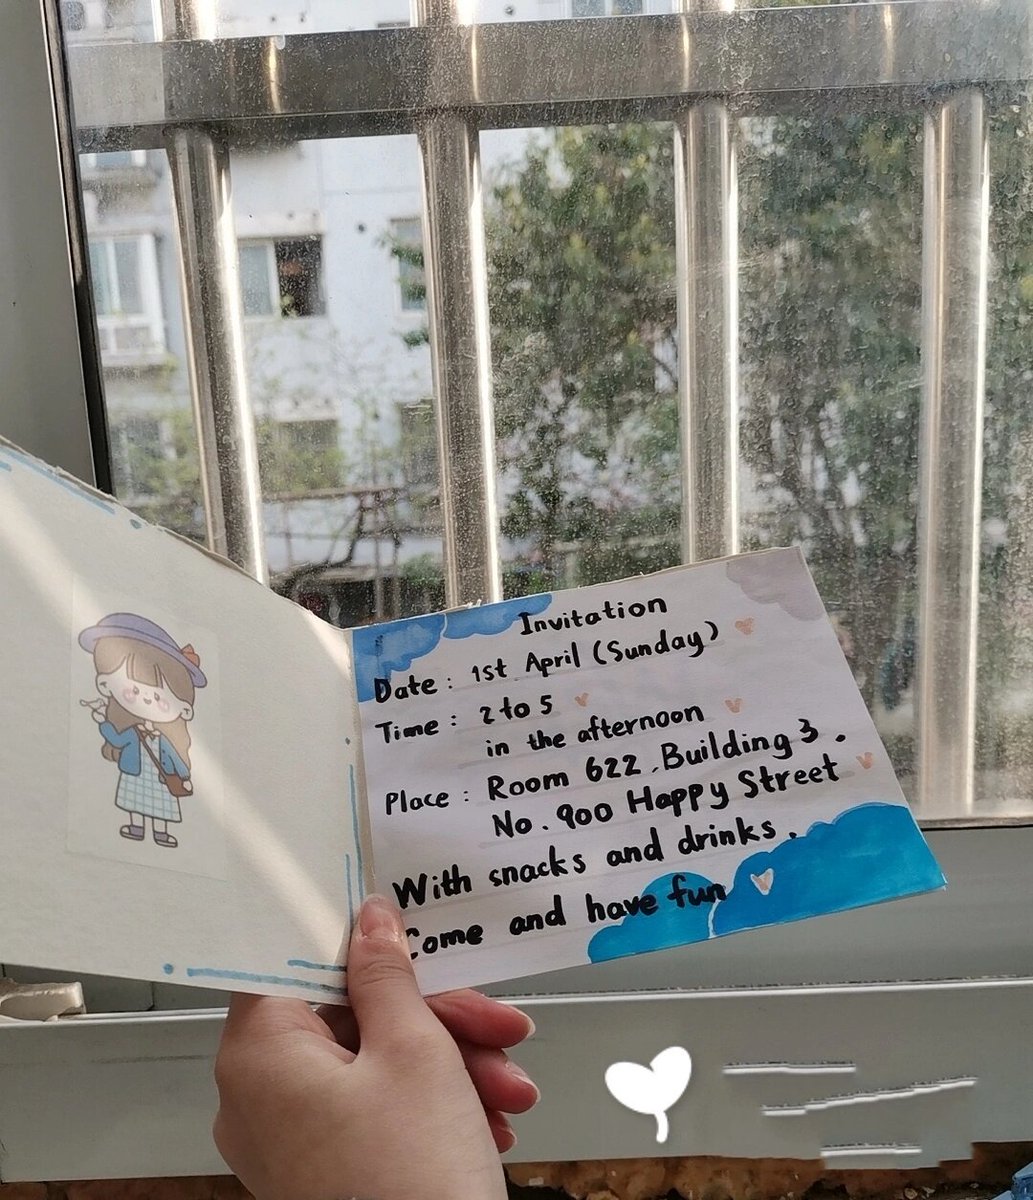 Invitation
Date : 1st April (Sunday)
Time : 2 to 5
in the afternoon
Place : Room 622 , Building 3 .
No . 900 Happy Street
With snacks and drinks .
Come and have fun